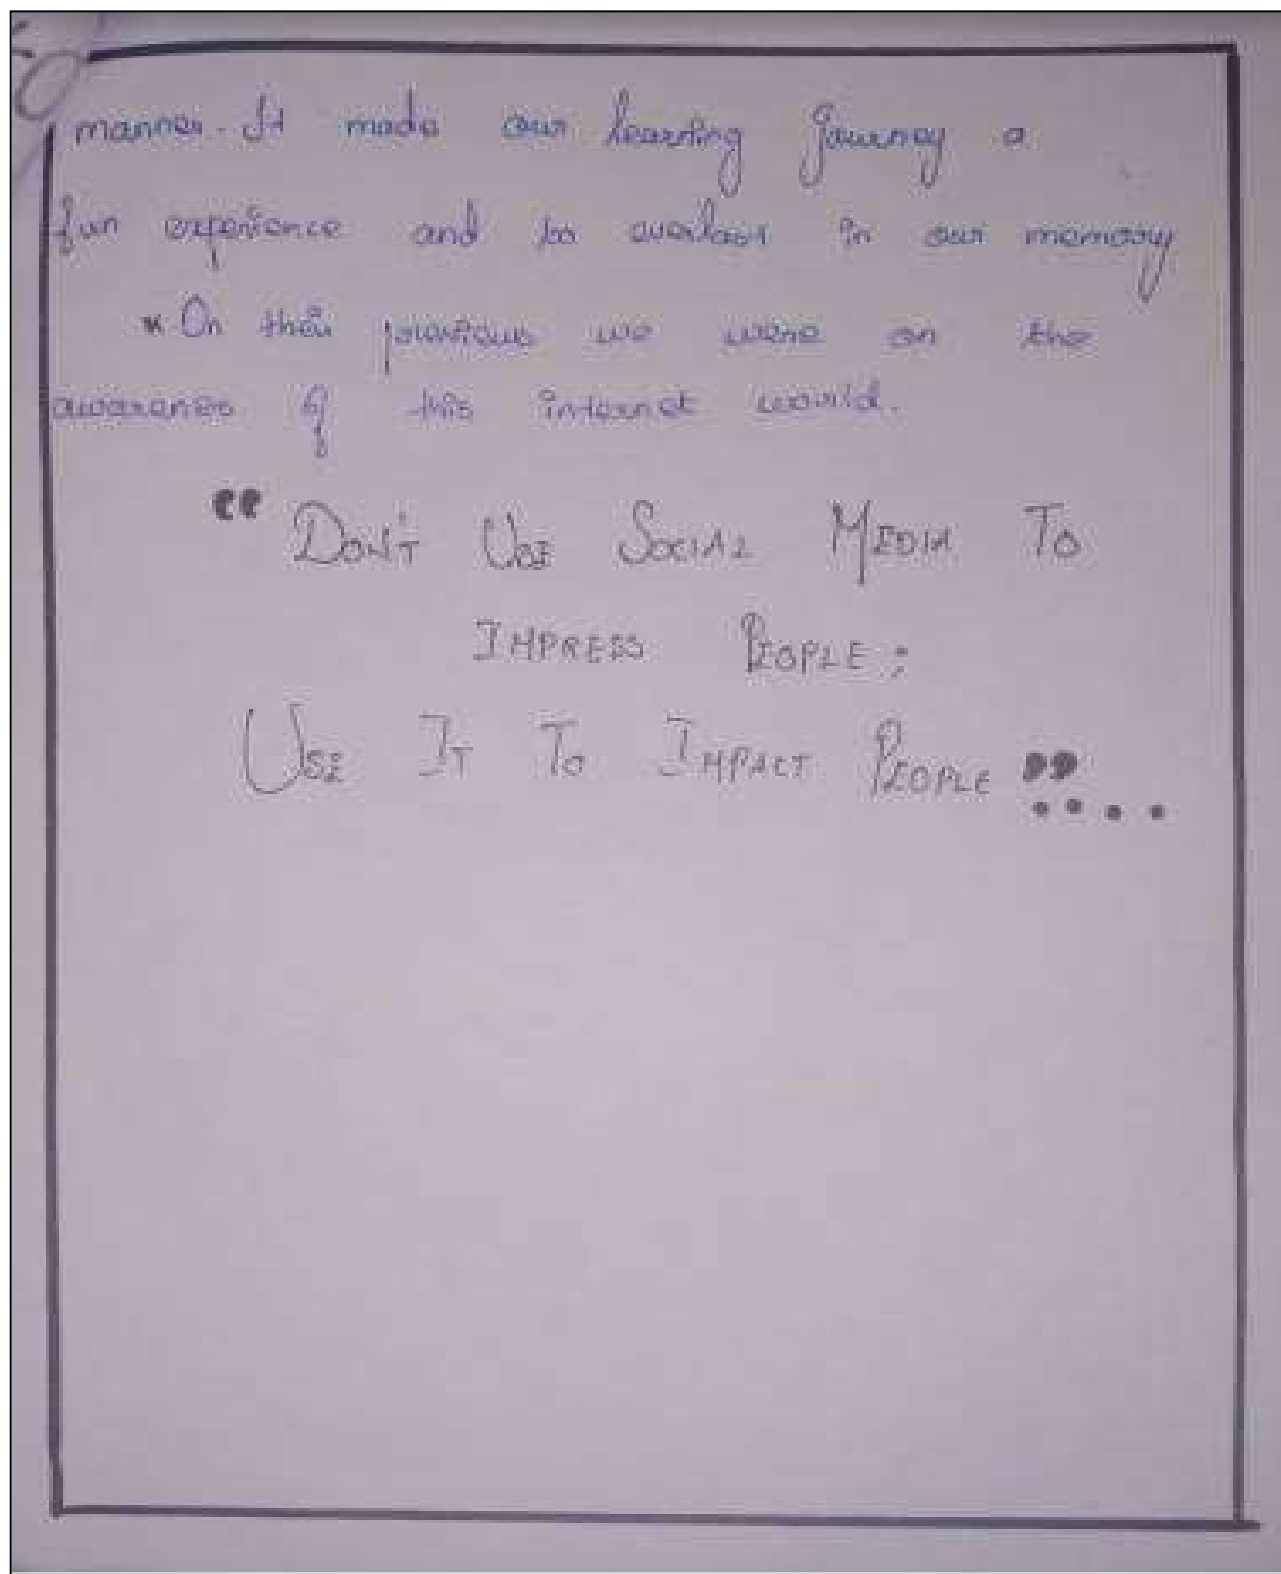 manner. It made our learning journey a
fun experience and to everlast in our memory
* On this previous we were on the
awarenes of this internet world.
“ DON'T USE SOCIAL MEDIA TO
IMPRESS PEOPLE;
USE IT TO IMPACT PEOPLE ”....